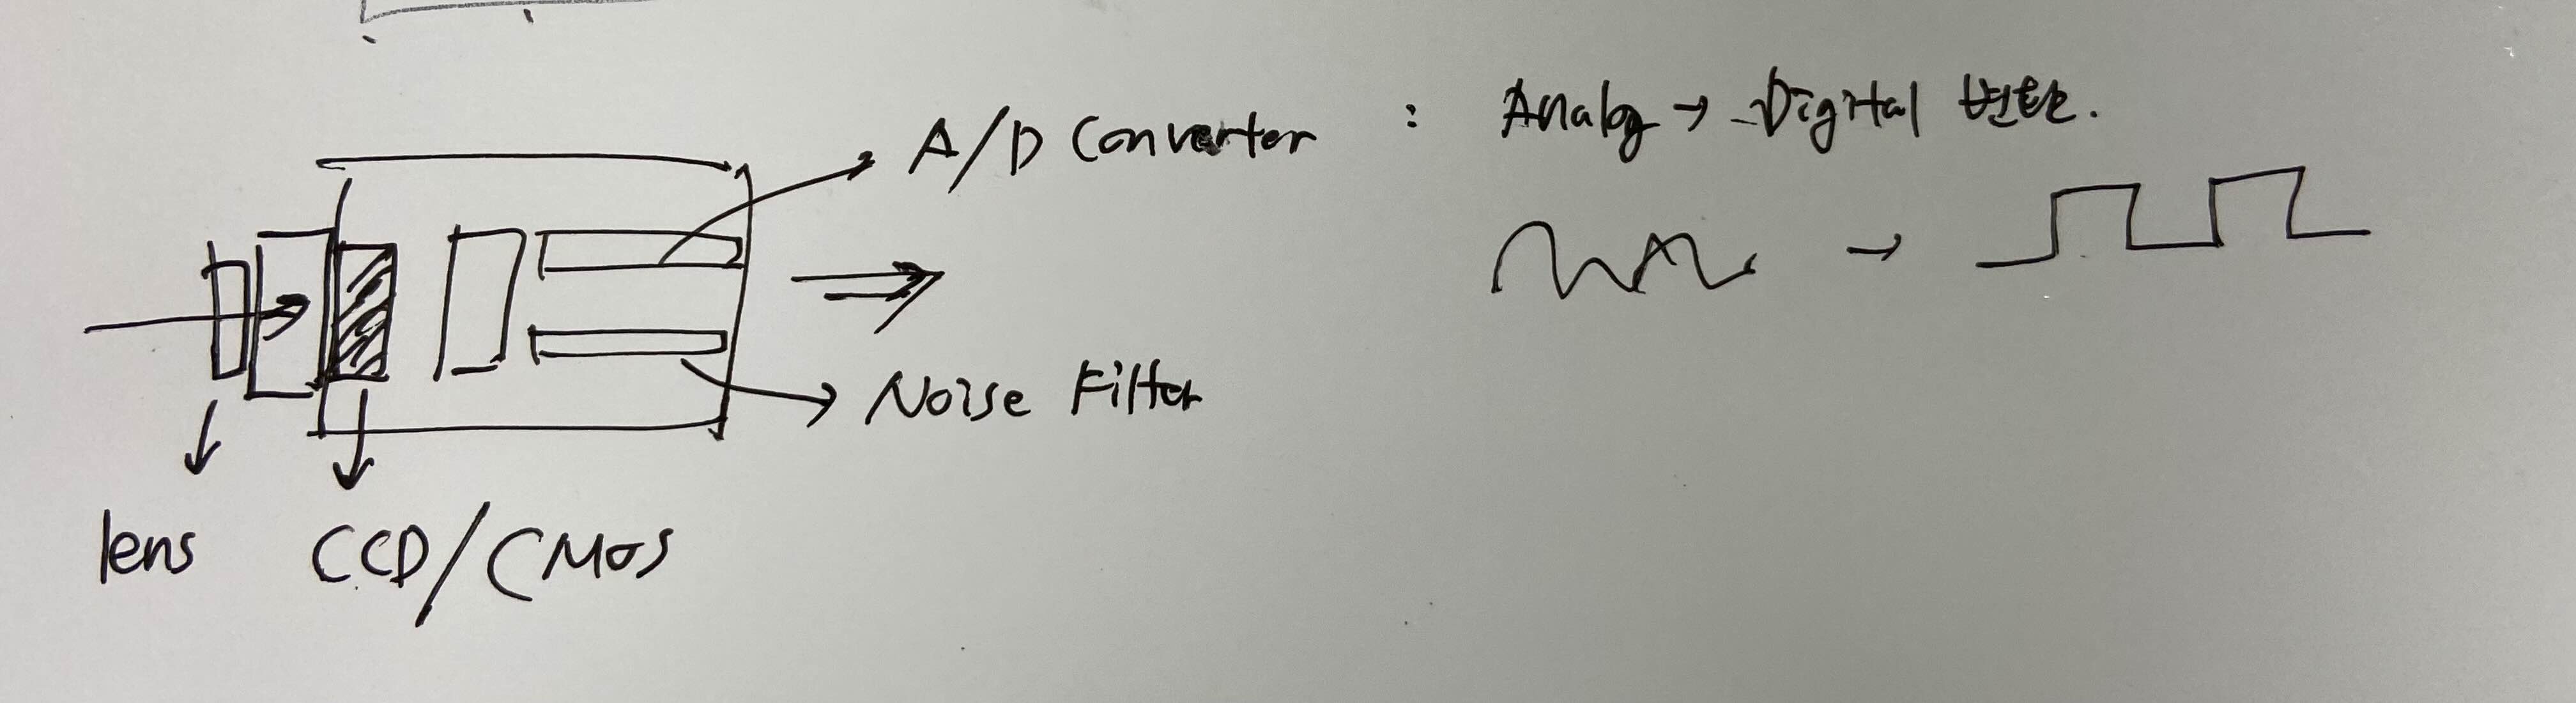 A/D Converter : Analog → Digital 변환.
Noise Filter
lens CCD/CMOS